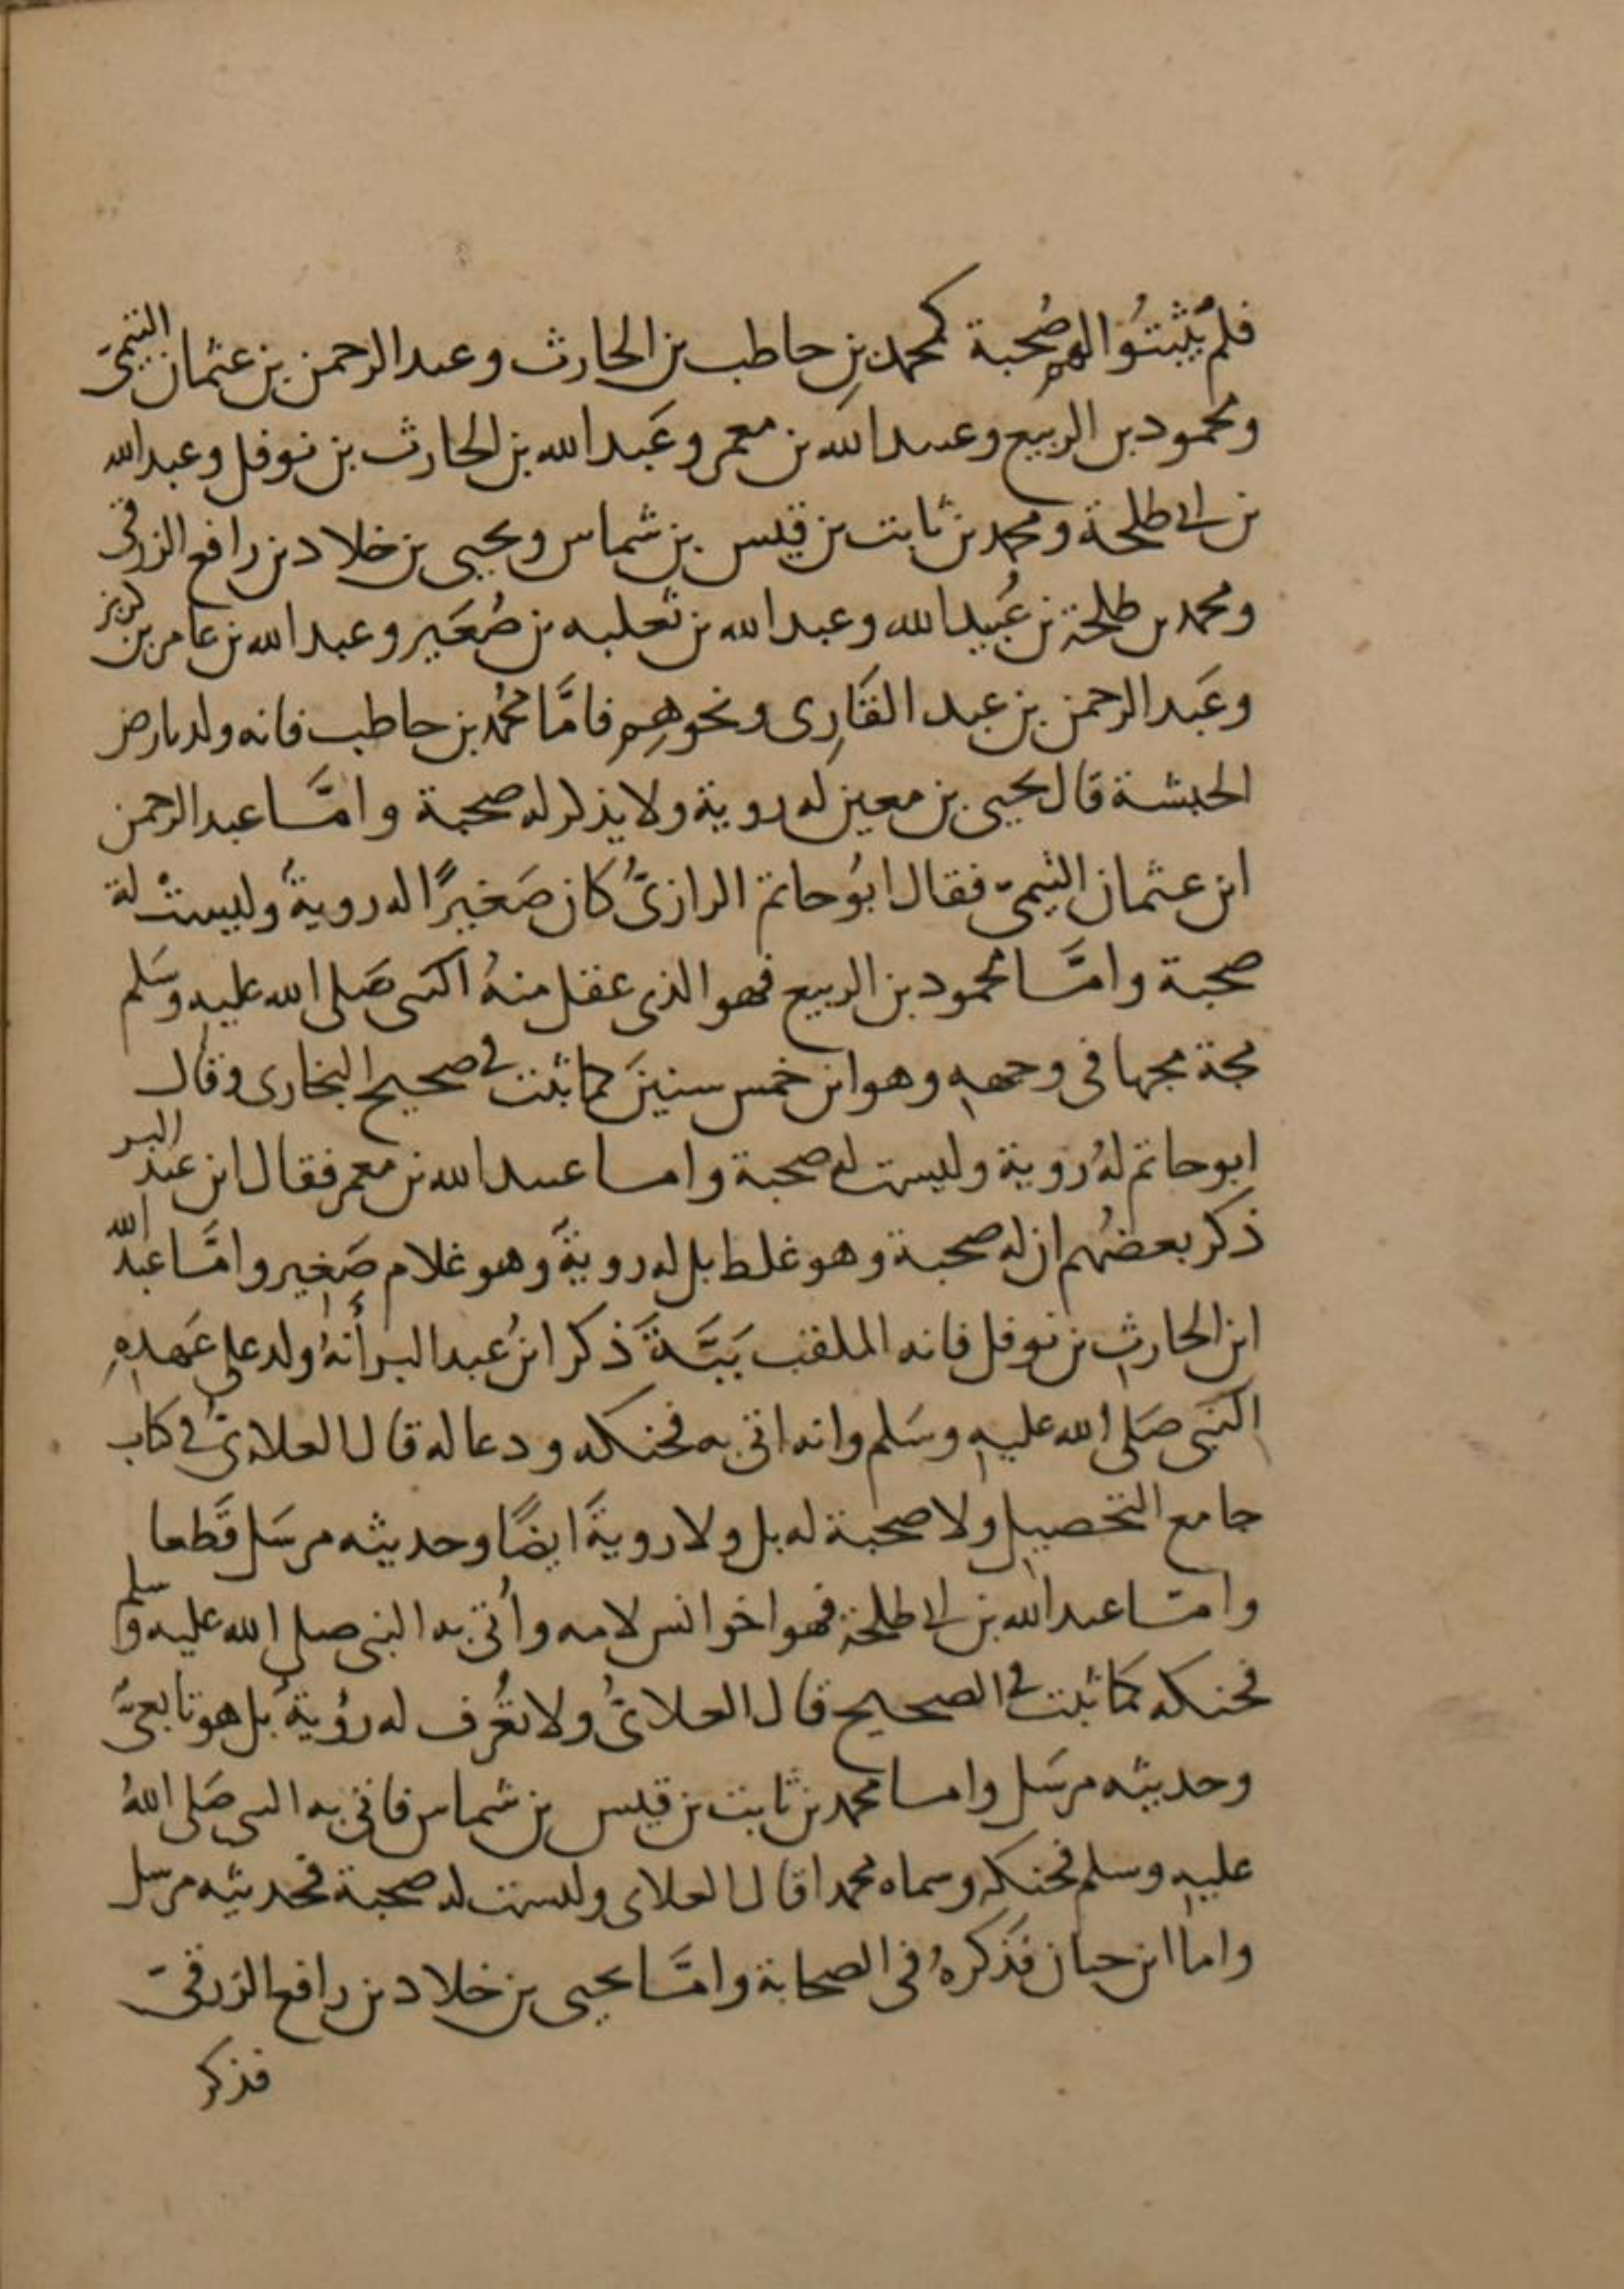 فلم يُثبتُوا لهم صُحبة كمحمد بنِ حاطب بن الحارث وعبد الرحمن بن عثمان التيمىّ
ومحمود بن الربيع وعبيد الله بن معمر وعَبد الله بن الحارث بن نوفل وعبد الله
بن ابى طلحة ومحمد بن ثابت بن قيس بن شماس ويحيى بن خلاد بن رافع الزرقى
ومحمد بن طلحة بن عُبيد الله وعبد الله بن ثعلبه بن صُعَير وعبد الله بن عامر بن كريز
وعَبد الرحمن بن عبد القَارِى ونحوهِم فامَّا محمُد بن حاطب فانه ولد بارض
الحبشة قال يحيى بن معين له روية ولا يذكر له صحبة وامَّا عبد الرحمن
ابن عثمان التيمىّ فقال ابُو حاتم الرازىُّ كان صَغيرًا له رويةُ وليستْ له
صحبة وامَّا محمود بن الربيع فهو الذى عقل منهُ النبى صَلى الله عليه وسَلم
مجة مجها فى وجهه وهو ابن خمس سنينَ كما ثبت فى صحيح البخارى وقال
ابو حاتم لهُ روية وليست له صحبة واما عبيد الله بن معمر فقال ابن عبد البر
ذكر بعضُهم ان له صحبة وهو غلط بل له رويةٌ وهو غلام صَغير وامَّا عبد الله
ابن الحارث بن نوفل فانه الملقب بَبَّةَ ذكر ابنُ عبد البر أنهُ ولد على عَهدِ
النَبى صَلى الله عليه وسَلم وانه اتى به فحنكه ودعا له قال العلاءىُّ فى كتاب
جامع التحصيل ولا صحبة له بل ولا رويةَ ايضًا وحديثه مرسَل قَطعا
وامّا عبد الله بن ابى طلحة فهو اخو انس لامه وأُتى به النبى صلى الله عليه وسلم
فحنكه كما ثبت فى الصحيح قال العلاءىُّ ولا تعُرف له رؤيةُ بل هو تابعىُّ
وحديثه مرسَل واما محمد بن ثابت بن قيس بن شماس فاتى به النبى صَلى اللهُ
عليه وسلم فحنكه وسماه محمدا قال العلاى وليست له صحبة فحديثه مرسل
واما ابن حبان فذكرهُ فى الصحابة وامَّا يحيى بن خلاد بن رافع الزرقىّ
فذكر